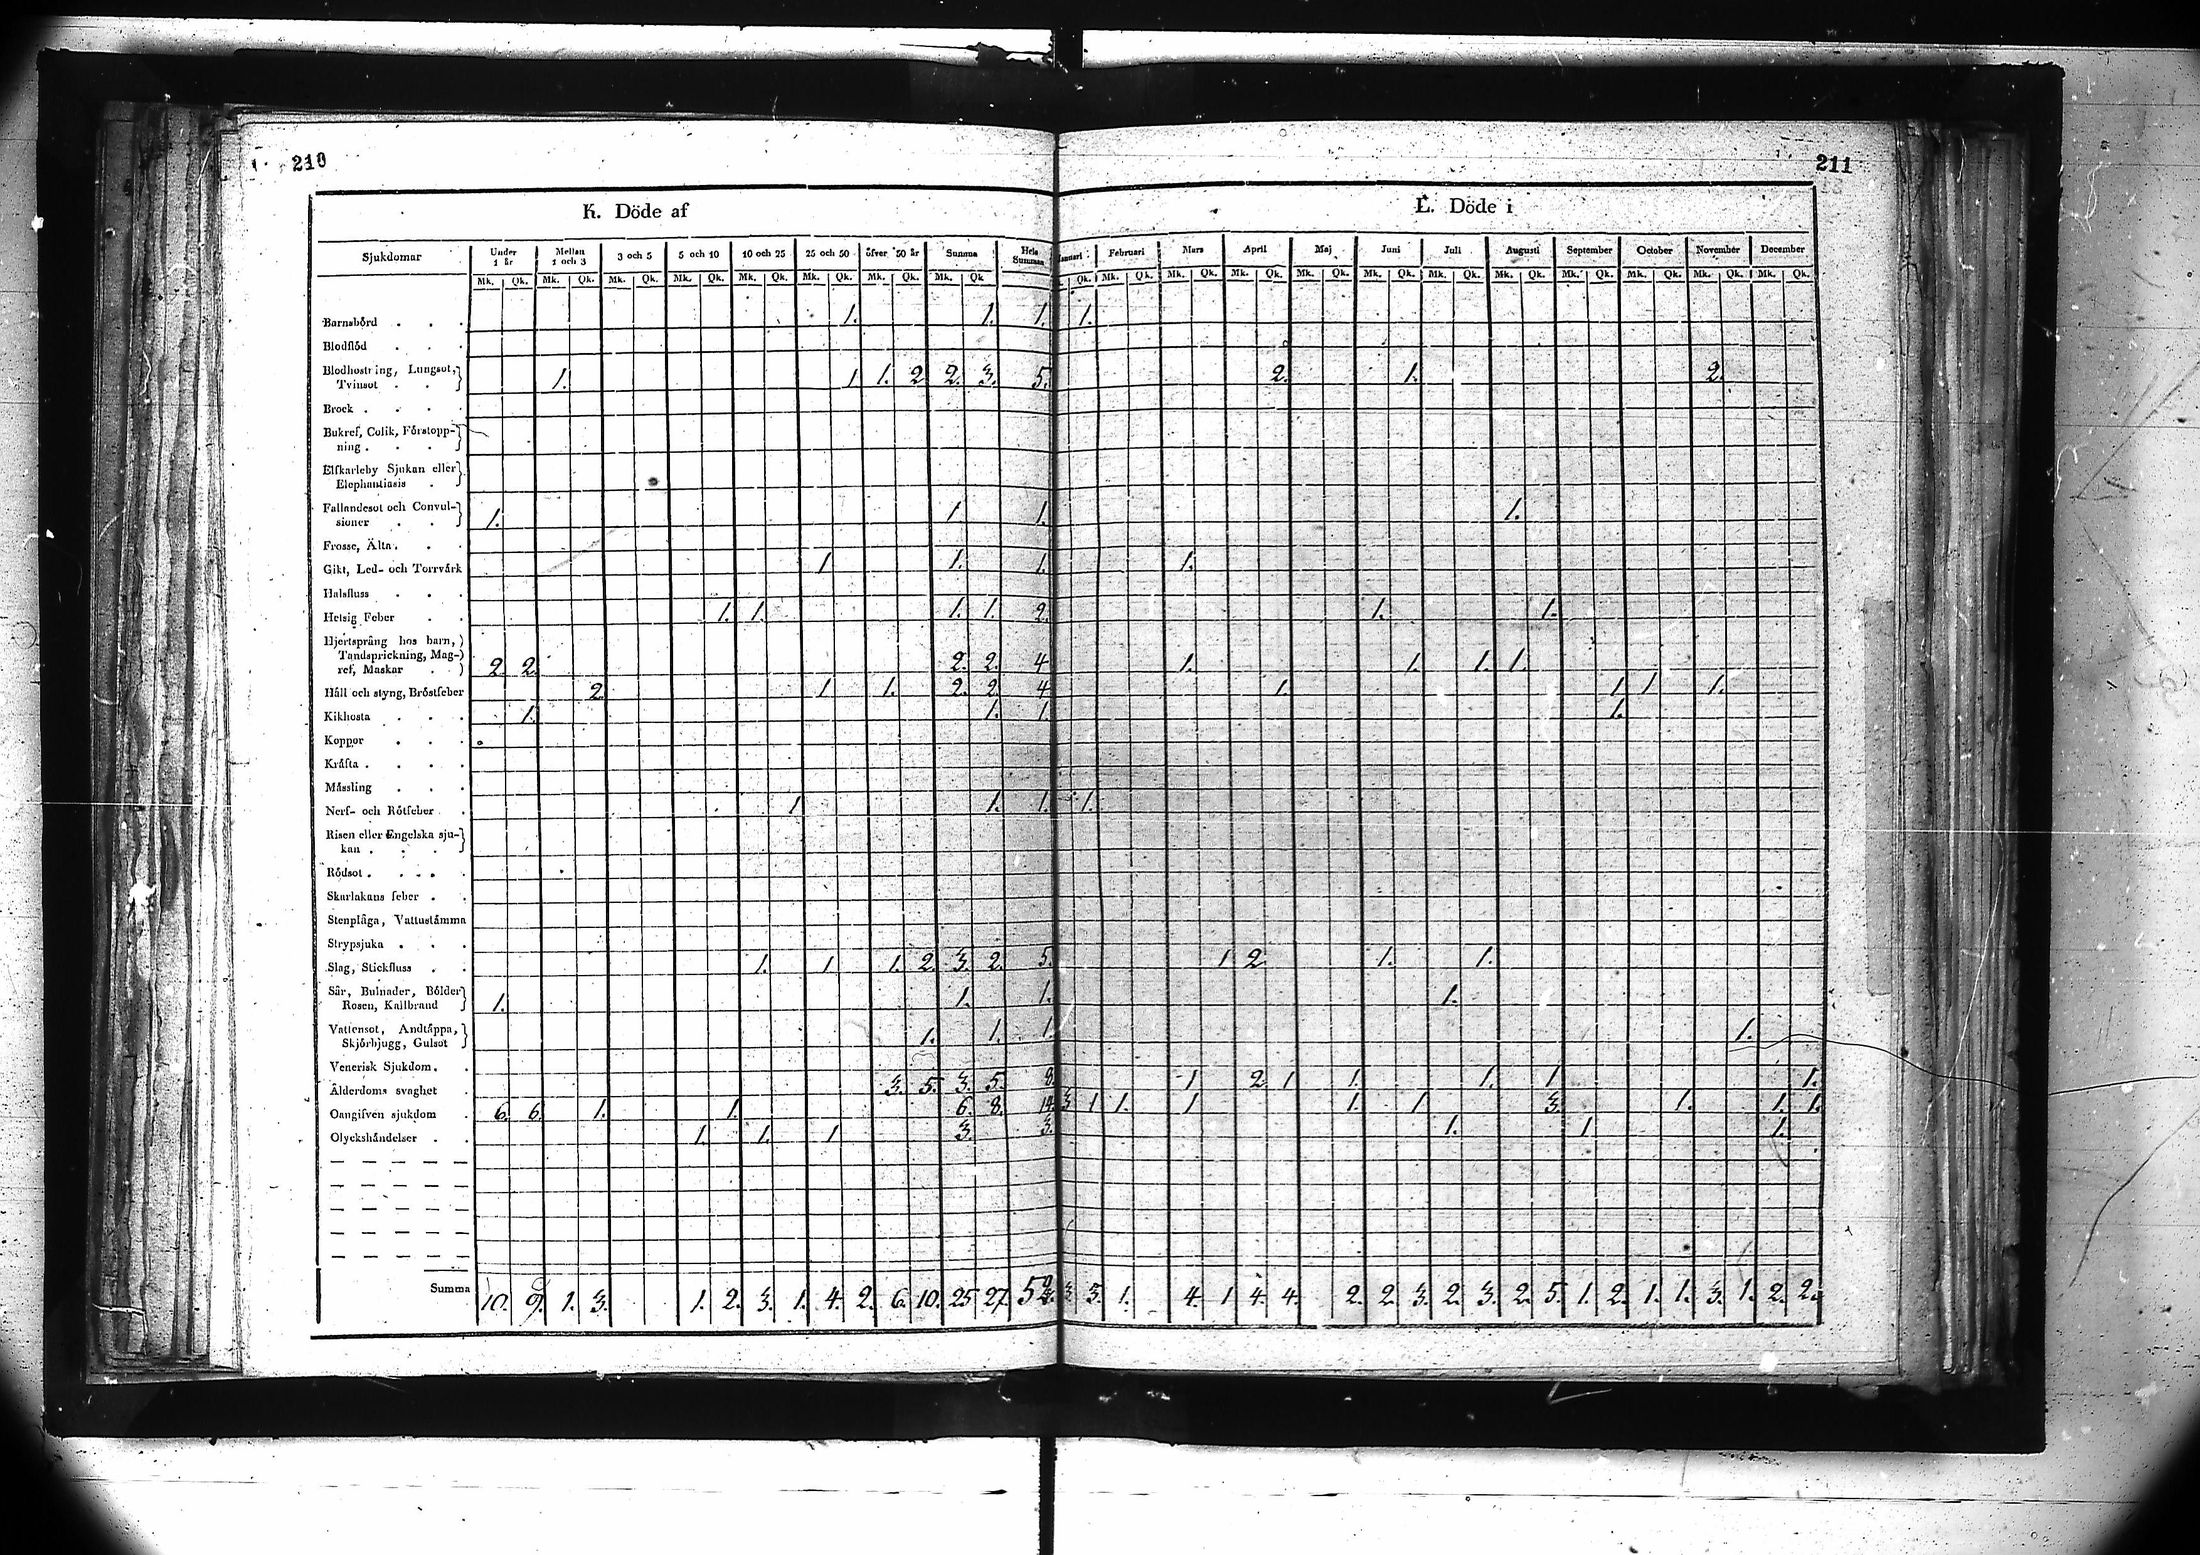 210
211
K. Döde af
L. Döde i
Sjukdomar Under 1 år Mellan 1 och 3 3 och 5 5 och 10 10 och 25 25 och 50 öfver 50 år Summa Hela Summan
Januari Februari Mars April Maj Juni Juli Augusti September October November December
Mk. Qk. Mk. Qk. Mk. Qk. Mk. Qk. Mk. Qk. Mk. Qk. Mk. Qk. Mk. Qk
Qk. Mk. Qk. Mk. Qk. Mk. Qk. Mk. Qk. Mk. Qk. Mk. Qk. Mk. Qk. Mk. Qk. Mk. Qk. Mk. Qk. Mk. Qk.
Barnsbörd . . . 1. 1. 1. 1.
Blodflöd . . .
Blodhostning, Lungsot,
Tvinsot . . } 1. 1 1. 2 2. 3. 5. 2. 1. 2.
Brock . . . .
Bukref, Colik, Förstopp-
ning . . . }
Elfkarleby Sjukan eller
Elephantiasis . }
Fallandesot och Convul-
sioner . . } 1. 1. 1. 1.
Frosse, Älta . . .
Gikt, Led- och Torrvärk 1 1. 1. 1.
Halsfluss . . .
Hetsig Feber . . 1. 1. 1. 1. 2. 1. 1.
Hjertsprång hos barn, )
Tandsprickning, Mag- )
ref, Maskar . ) 2. 2. 2. 2. 4 1. 1. 1. 1.
Håll och styng, Bröstfeber 2. 1 1. 2. 2. 4 1. 1 1 1.
Kikhosta . . . 1. 1. 1. 1.
Koppor . . .
Kräfta . . . .
Mässling . . .
Nerf- och Rötfeber . 1. 1. 1. 1.
Risen eller Engelska sju-
kan . . . }
Rödsot . . . . .
Skarlakans feber . .
Stenplåga, Vattustämma
Strypsjuka . . .
Slag, Stickfluss . . 1. 1 1. 2. 3. 2. 5. 1 2. 1. 1.
Sår, Bulnader, Bölder
Rosen, Kallbrand } 1. 1. 1. 1.
Vattensot, Andtäppa,
Skjörbjugg, Gulsot } 1. 1. 1. 1.
Venerisk Sjukdom . .
Ålderdoms svaghet . 3. 5. 3. 5. 8. 1 2 1 1. 1. 1 1.
Oangifven sjukdom . 6. 6. 1. 1. 6. 8. 14. 3 1 1. 1 1. 1 3. 1. 1. 1.
Olyckshändelser . . 1. 1. 1 3. 3. 1. 1 1.
Summa 10. 9. 1. 3. 1. 2. 3. 1. 4. 2. 6. 10. 25 27. 52. 3 3. 1. 4. 1 4. 4. 2. 2. 3. 2. 3. 2. 5. 1. 2. 1. 1. 3. 1. 2. 2.